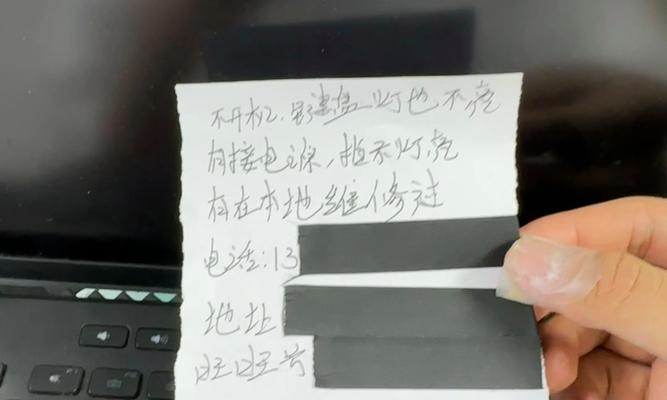 不开机.且键盘灯也不亮
有接电源,指示灯亮
有在本地维修过
电话:13
地址
旺旺号